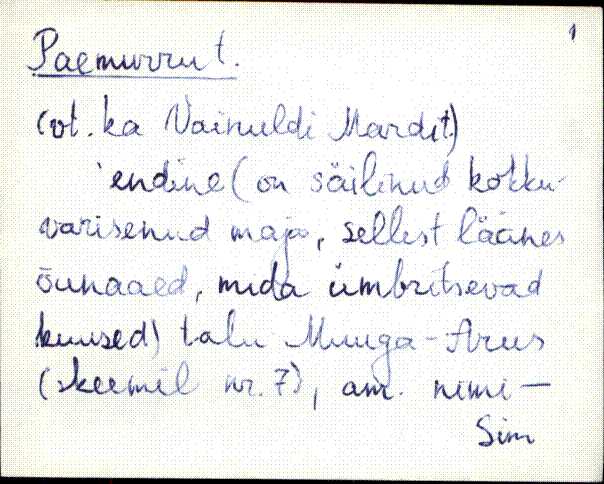 1
Paemurru t.
(vt. ka Vainuldi Mardi t.)
'endine (on säilinud kokku-
varisenud maja, sellest läänes
õunaaed, mida ümbritsevad
kuused) talu Muuga-Arus
(skeemil nr. 7), am. nimi -
Sim